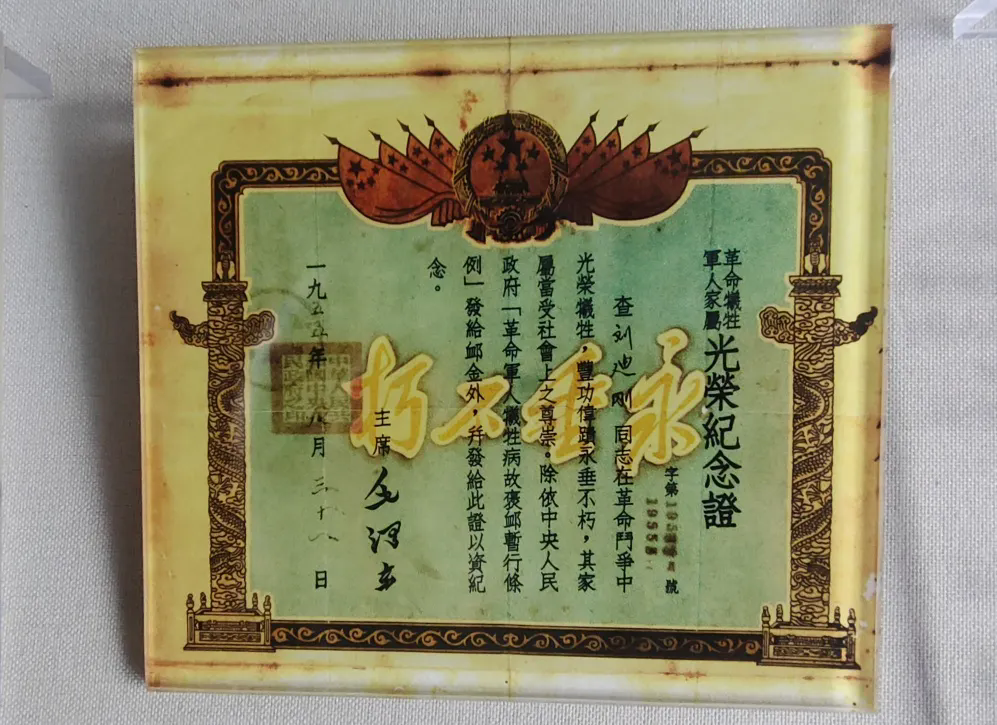 革命犧牲
軍人家屬
光榮紀念證
字第195 號
1955
查刘迪刚同志在革命鬥爭中
光榮犧牲，豐功偉蹟永垂不朽，其家
屬當受社會上之尊崇。除依中央人民
政府「革命軍人犧牲病故褒卹暫行條
例」發給卹金外，幷發給此證以資紀
念。
主席 毛澤东
一九五五年八月三十八日
永垂不朽